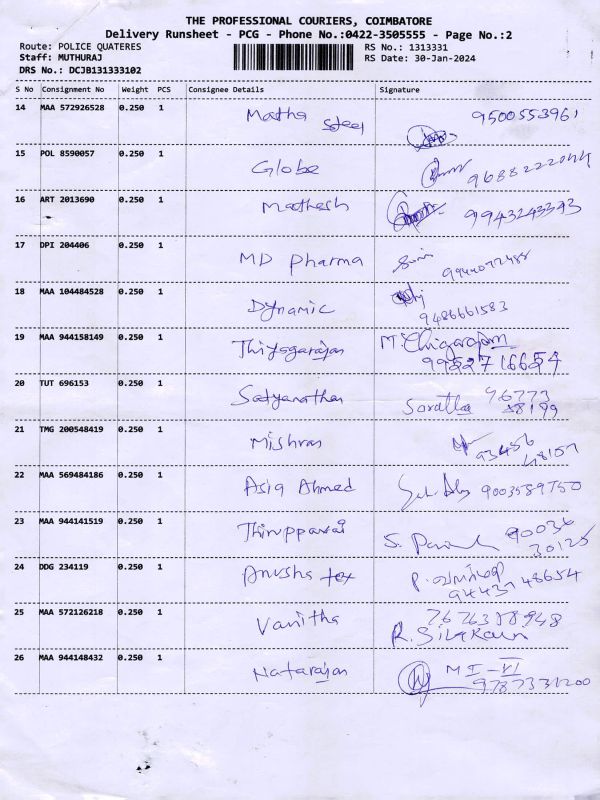 THE PROFESSIONAL COURIERS, COIMBATORE
Delivery Runsheet - PCG - Phone No.:0422-3505555 - Page No.:2
Route: POLICE QUATERES
RS No.: 1313331
Staff: MUTHURAJ
RS Date: 30-Jan-2024
DRS No.: DCJB131333102
S No Consignment No Weight PCS Consignee Details Signature
14 MAA 572926528 0.250 1 Matha Steel 9500553961
15 POL 8590057 0.250 1 Globe 9688222044
16 ART 2013690 0.250 1 Mathesh 9943243393
17 DPI 204406 0.250 1 MD Pharma
18 MAA 104484528 0.250 1 Dynamic 9486661583
19 MAA 944158149 0.250 1 Thiyagarajan 9952716654
20 TUT 696153 0.250 1 Satyanathan 96773
21 TMG 200548419 0.250 1 Mishran 93456 48157
22 MAA 569484186 0.250 1 Asiq Ahmed 9003589750
23 MAA 944141519 0.250 1 Thiruppavai S. 90036 30125
24 DDG 234119 0.250 1 Anusha tex 94437 48654
25 MAA 572126218 0.250 1 Vanitha R.
26 MAA 944148432 0.250 1 Natarajan M II - VI 9787331200